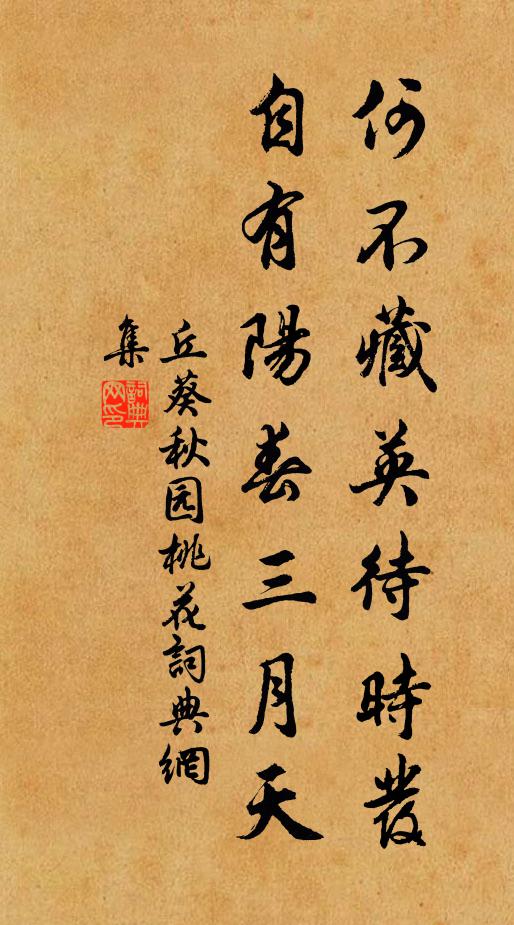 何不藏英待時發
自有陽春三月天
丘葵秋园桃花詞典網
集
詞典
网印